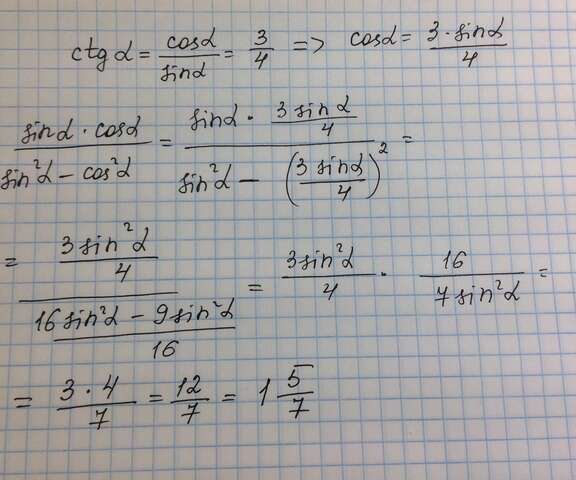 ctg α = cosα/sinα = 3/4 => cosα = 3·sinα/4
sinα · cosα/sin²α − cos²α = sinα · 3 sinα/4/sin²α − (3 sinα/4)² =
= 3 sin²α/4/16 sin²α − 9 sin²α/16 = 3 sin²α/4 · 16/7 sin²α =
= 3 · 4/7 = 12/7 = 1 5/7